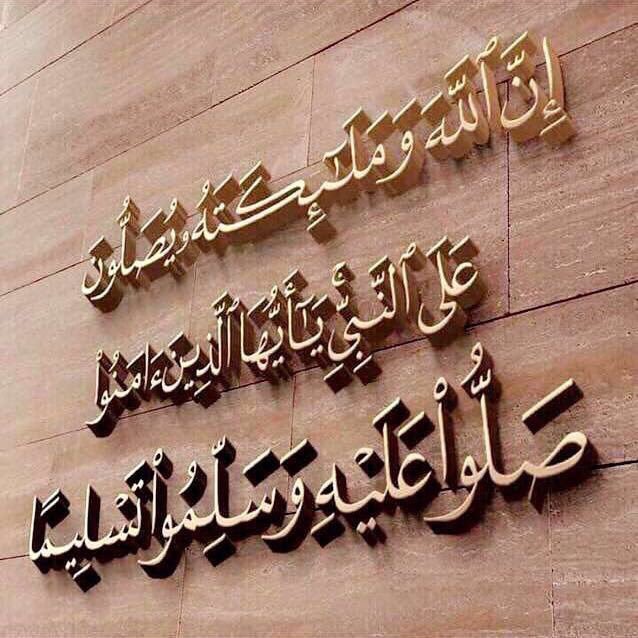 إِنَّ ٱللَّهَ وَمَلَٰٓئِكَتَهُۥ يُصَلُّونَ
عَلَى ٱلنَّبِىِّ يَٰٓأَيُّهَا ٱلَّذِينَ ءَامَنُوا۟
صَلُّوا۟ عَلَيْهِ وَسَلِّمُوا۟ تَسْلِيمًا